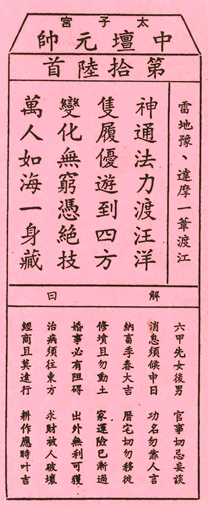 太子宮
中壇元帥
第拾陸首
雷地豫、達摩一葦渡江
神通法力渡汪洋
隻履優遊到四方
變化無窮憑絕技
萬人如海一身藏
解曰
六甲先女後男 官事切忌妄談
消息須候申日 功名勿靠人言
納畜季春大吉 厝宅切勿移徙
修墳且勿動土 家運險已漸過
婚事必有阻碍 出外無利可獲
治病須往東方 求財被人破壞
經商且莫遠行 耕作應時叶吉